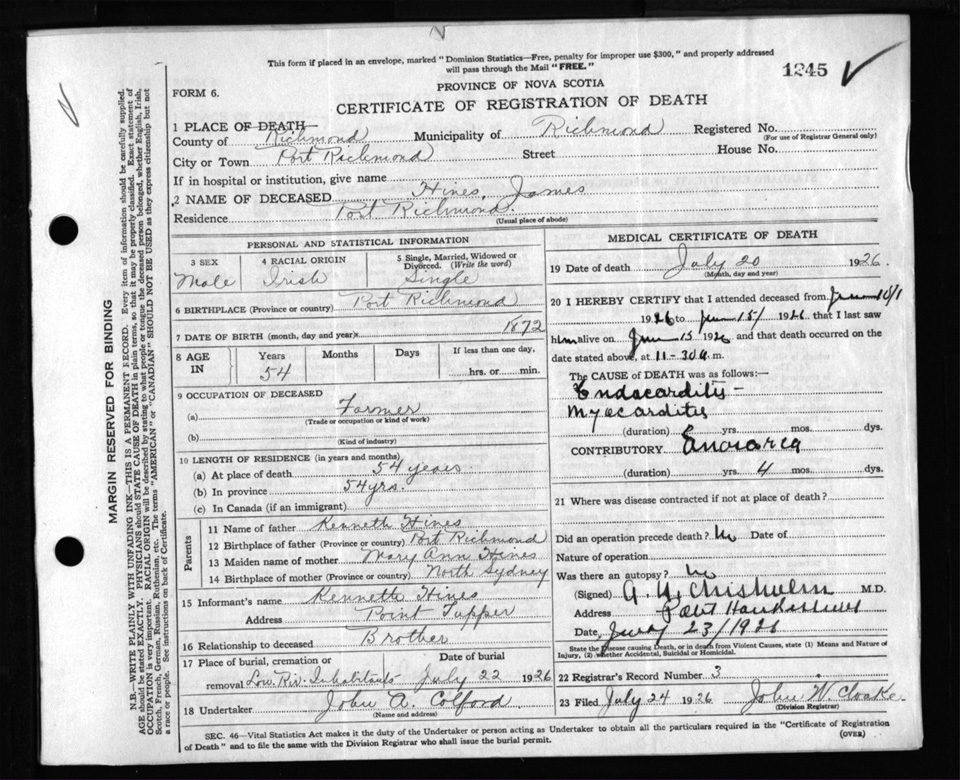 This form if placed in an envelope, marked "Dominion Statistics—Free, penalty for improper use $300," and properly addressed
will pass through the Mail "FREE."
1245
PROVINCE OF NOVA SCOTIA
FORM 6.
CERTIFICATE OF REGISTRATION OF DEATH
1 PLACE OF DEATH—
County of Richmond Municipality of Richmond Registered No.
(For use of Registrar General only)
City or Town Port Richmond Street House No.
If in hospital or institution, give name
2 NAME OF DECEASED Hines, James
Residence Port Richmond.
(Usual place of abode)
PERSONAL AND STATISTICAL INFORMATION
3 SEX
Male
4 RACIAL ORIGIN
Irish
5 Single, Married, Widowed or
Divorced. (Write the word)
Single
6 BIRTHPLACE (Province or country) Port Richmond
7 DATE OF BIRTH (month, day and year) 1872
8 AGE IN
Years
54
Months
Days
If less than one day,
hrs. or min.
9 OCCUPATION OF DECEASED
(a) Farmer
(Trade or occupation or kind of work)
(b)
(Kind of industry)
10 LENGTH OF RESIDENCE (in years and months)
(a) At place of death 54 years.
(b) In province 54 yrs.
(c) In Canada (if an immigrant)
Parents
11 Name of father Kenneth Hines
12 Birthplace of father (Province or country) Port Richmond
13 Maiden name of mother Mary Ann Hines
14 Birthplace of mother (Province or country) North Sydney
15 Informant's name Kenneth Hines
Address Point Tupper
16 Relationship to deceased Brother
17 Place of burial, cremation or Date of burial
removal Low. Riv. Inhabitants July 22 1926
18 Undertaker John A. Colford
(Name and address)
MEDICAL CERTIFICATE OF DEATH
19 Date of death July 20 1926.
(Month, day and year)
20 I HEREBY CERTIFY that I attended deceased from
1926 to 15/ 1926 that I last saw
him alive on 15 1926 and that death occurred on the
date stated above, at 11-30 a. m.
The CAUSE OF DEATH was as follows:—
Endocarditis—
Myocarditis
(duration) yrs. mos. dys.
CONTRIBUTORY
(duration) yrs. 4 mos. dys.
21 Where was disease contracted if not at place of death?
Did an operation precede death? no Date of
Nature of operation
Was there an autopsy? no
(Signed) Chisholm M.D.
Address Port Hawkesbury
Date, 23/1926
State the Disease causing Death, or in death from Violent Causes, state (1) Means and Nature of
Injury, (2) whether Accidental, Suicidal or Homicidal.
22 Registrar's Record Number 3
23 Filed July 24 1926 John W.
(Division Registrar)
SEC. 46—Vital Statistics Act makes it the duty of the Undertaker or person acting as Undertaker to obtain all the particulars required in the "Certificate of Registration
of Death" and to file the same with the Division Registrar who shall issue the burial permit.
(OVER)
MARGIN RESERVED FOR BINDING
N.B.—WRITE PLAINLY WITH UNFADING INK—THIS IS A PERMANENT RECORD. Every item of information should be carefully supplied.
AGE should be stated EXACTLY. PHYSICIANS should STATE CAUSE OF DEATH in plain terms, so that it may be properly classified. Exact statement of
OCCUPATION is very important. RACIAL ORIGIN will be described by stating to what people or tongue the deceased person belonged, whether English, Irish,
Scotch, French, German, Russian, Ruthenian, etc. The terms "AMERICAN" or "CANADIAN" SHOULD NOT BE USED as they express citizenship but not
a race or people. See instructions on back of Certificate.